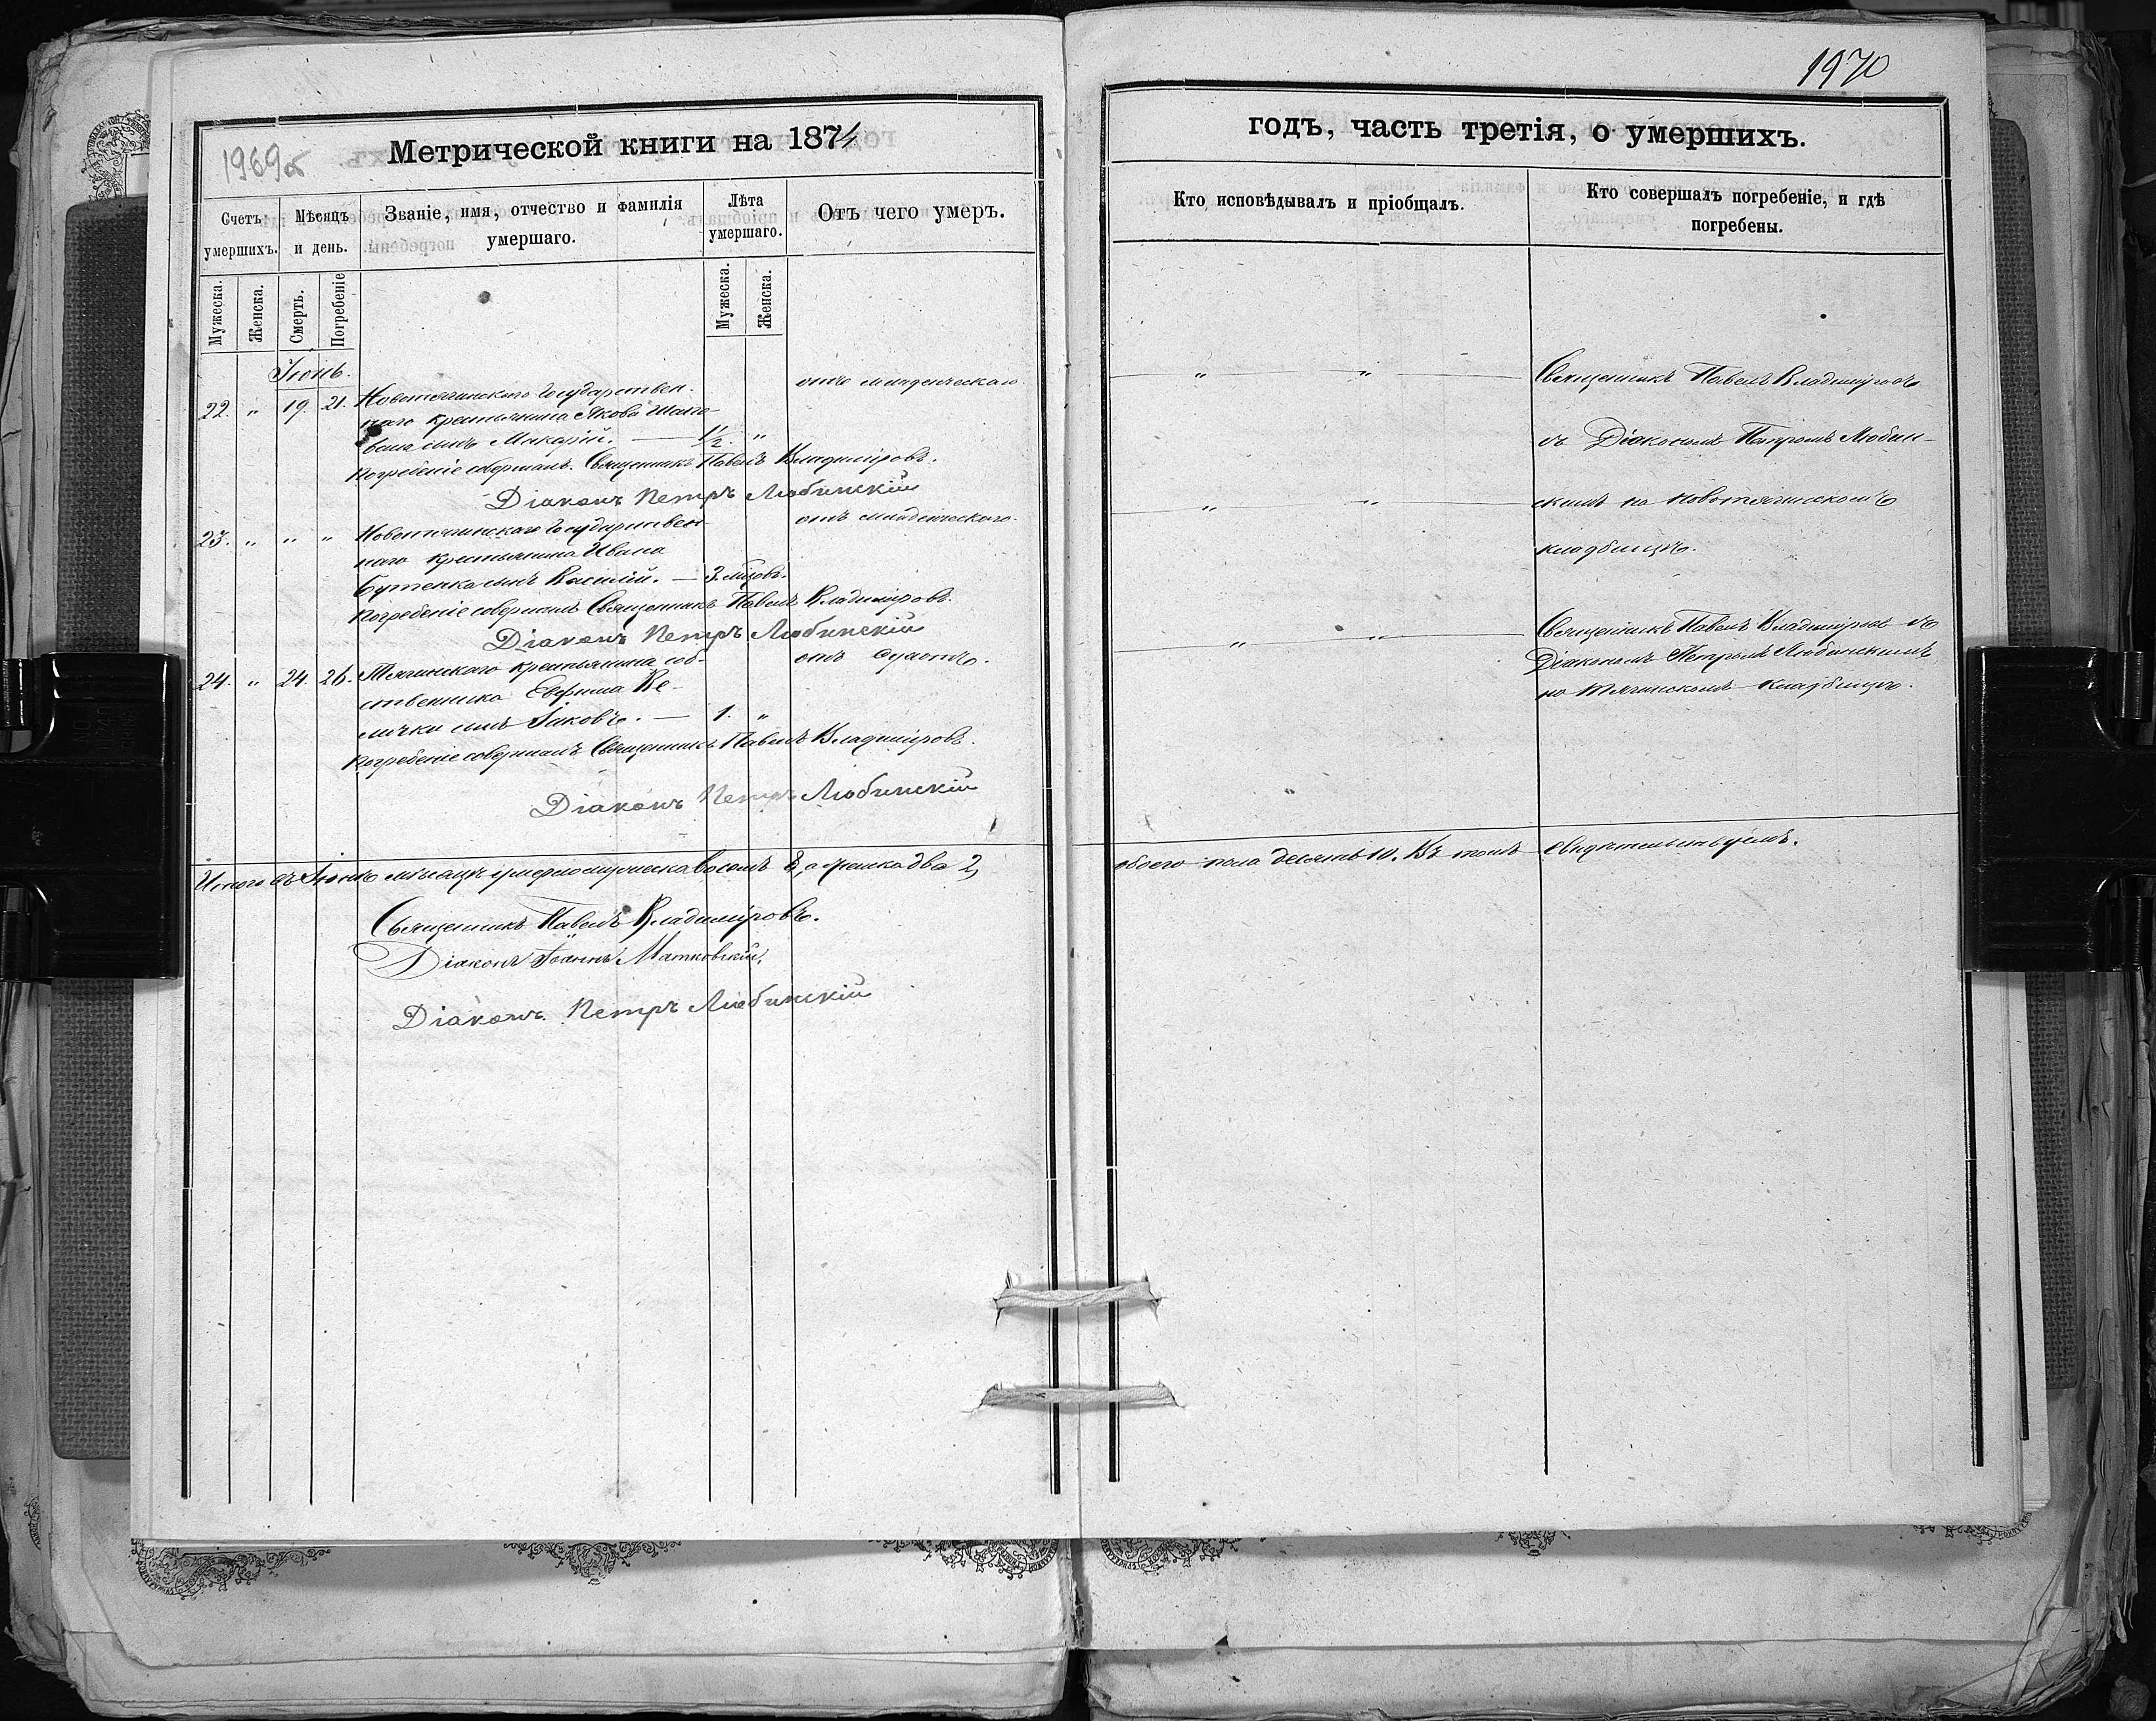 1970
1969об
Метрической книги на 1874
годъ, часть третія, о умершихъ.
Счетъ умершихъ.
Мѣсяцъ и день.
Званіе, имя, отчество и фамилія умершаго.
Лѣта умершаго.
Отъ чего умеръ.
Кто исповѣдывалъ и пріобщалъ.
Кто совершалъ погребеніе, и гдѣ погребены.
Мужеска.
Женска.
Смерть.
Погребеніе
Мужеска.
Женска.
Іюнь.
22. " 19. 21. Новотягинскаго Государствен-
наго крестьянина Якова
сынъ Макарій. — 1½. "
отъ младенческаго.
Погребеніе совершалъ Священникъ Павелъ Владиміровъ.
Діаконъ Петръ Любинскій
23. " " " Новотягинскаго Государствен-
наго крестьянина Ивана
Бутенка сынъ Василій. — 3. мѣсяцовъ.
отъ младенческаго.
Погребеніе совершалъ Священникъ Павелъ Владиміровъ.
Діаконъ Петръ Любинскій
24. " 24. 26. Тягинскаго крестьянина соб-
ственника Евфима Ке-
лички сынъ Іаковъ. — 1. "
отъ
Погребеніе совершалъ Священникъ Павелъ Владиміровъ.
Діаконъ Петръ Любинскій
Священникъ Павелъ Владиміровъ
съ Діакономъ Петромъ Любин-
скимъ на Новотягинскомъ
кладбищѣ.
Священникъ Павелъ Владиміровъ съ
Діакономъ Петромъ Любинскимъ
на Тягинскомъ кладбищѣ.
Итого въ Іюнѣ мѣсяцѣ умерло мужеска восемь 8, а женска два 2,
обоего пола десять 10. Въ томъ свидѣтельствуемъ.
Священникъ Павелъ Владиміровъ.
Діаконъ Іоаннъ Матковскій,
Діаконъ Петръ Любинскій